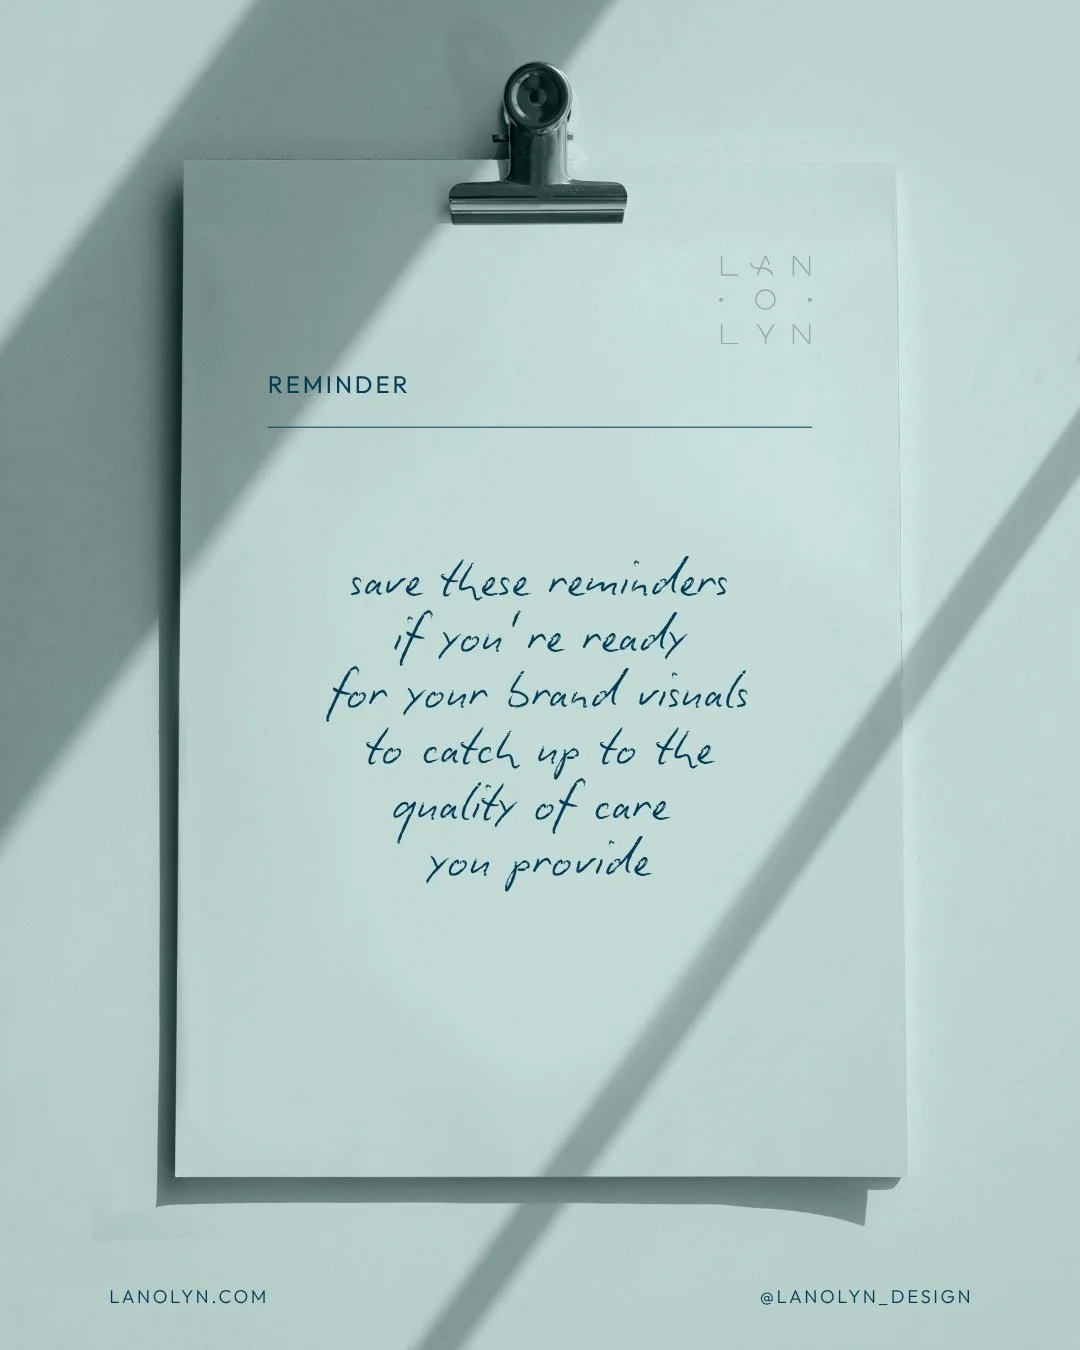 LAN
· O ·
LYN
REMINDER
save these reminders
if you're ready
for your brand visuals
to catch up to the
quality of care
you provide
LANOLYN.COM
@LANOLYN_DESIGN